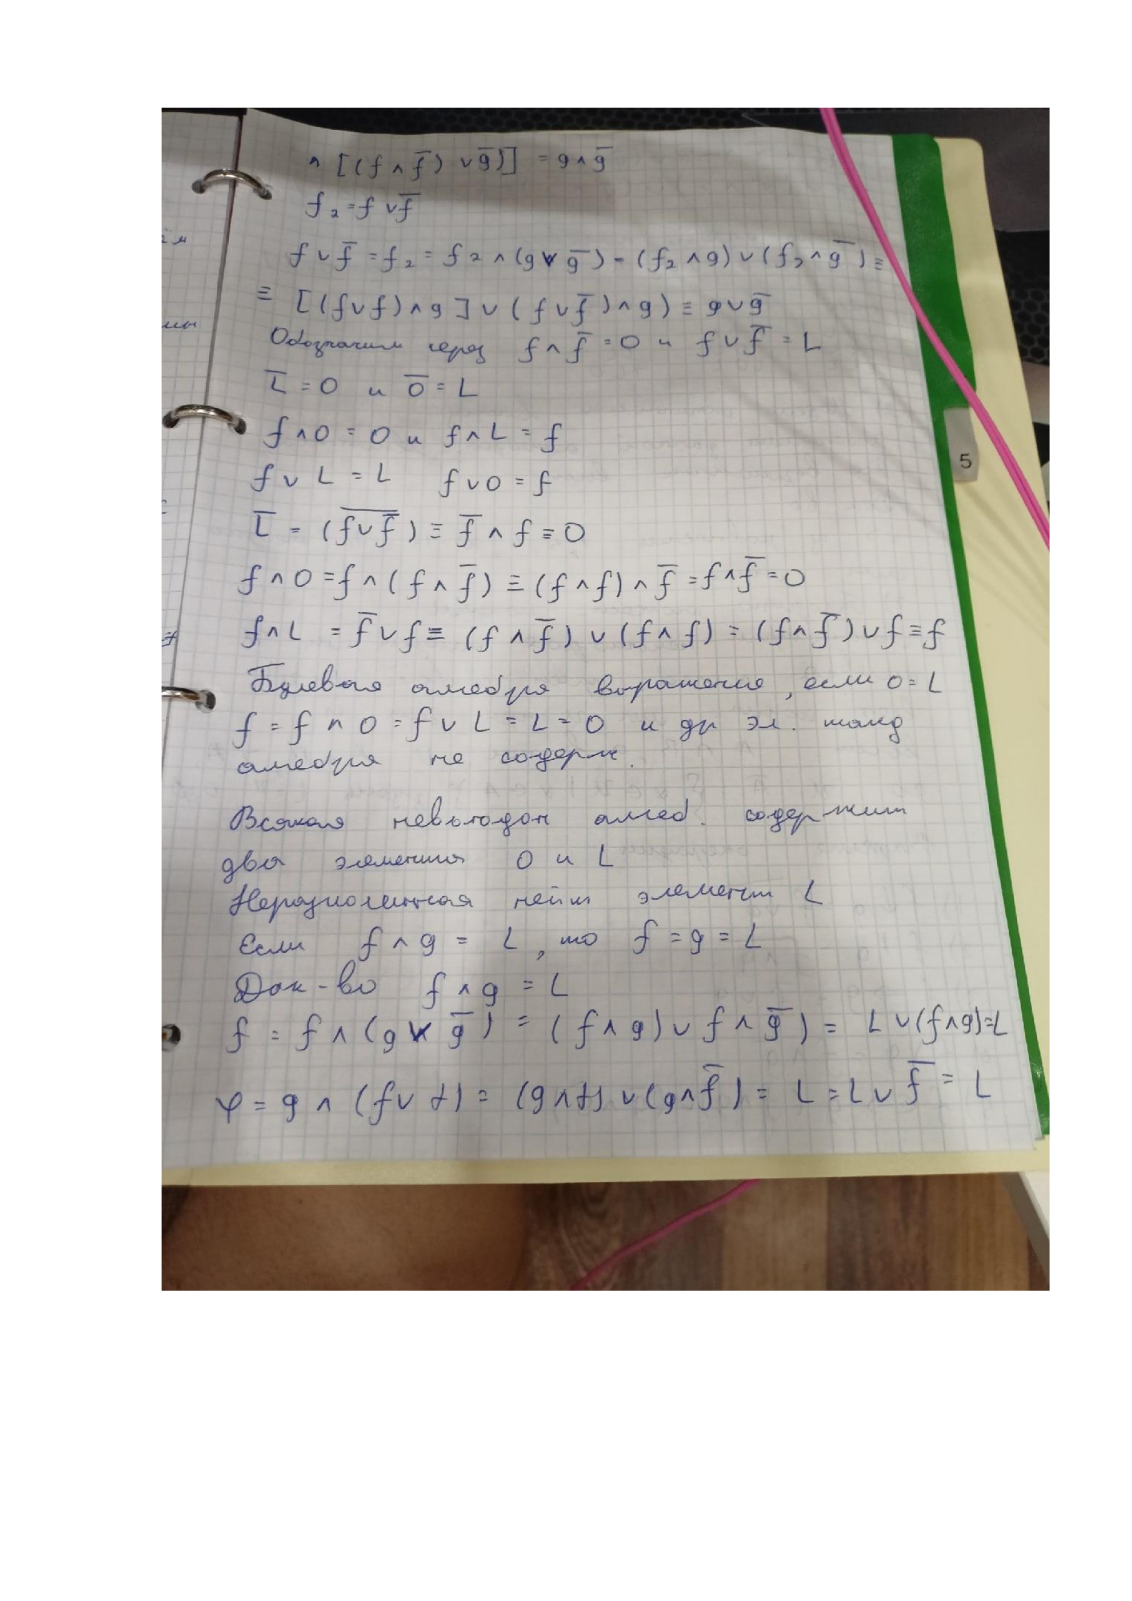 ∧ [(f ∧ f̅) ∨ g̅)] = g ∧ g̅
f₂ = f ∨ f̅
f ∨ f̅ = f₂ = f₂ ∧ (g ∨ g̅) = (f₂ ∧ g) ∨ (f₂ ∧ g̅) ≡
≡ [(f ∨ f) ∧ g] ∨ (f ∨ f̅) ∧ g) ≡ g ∨ g̅
Обозначим через f ∧ f̅ = 0 и f ∨ f̅ = L
L̅ = 0 и 0̅ = L
f ∧ 0 = 0 и f ∧ L = f
f ∨ L = L f ∨ 0 = f
L̅ = (f ∨ f̅)̅ ≡ f̅ ∧ f ≡ 0
f ∧ 0 = f ∧ (f ∧ f̅) ≡ (f ∧ f) ∧ f̅ = f ∧ f̅ = 0
f ∧ L = f̅ ∨ f ≡ (f ∧ f̅) ∨ (f ∧ f) = (f ∧ f̅) ∨ f ≡ f
Булевая алгебра выражения, если 0 = L
f = f ∧ 0 = f ∨ L = L = 0 и др эл.
алгебра не содерж.
Всякая алгеб. содержит
два элемента 0 и L
элемент L
Если f ∧ g = L, то f = g = L
Док-во f ∧ g = L
f = f ∧ (g ∨ g̅) = (f ∧ g) ∨ f ∧ g̅) = L ∨ (f ∧ g) = L
φ = g ∧ (f ∨ f) = (g ∧ f) ∨ (g ∧ f̅) = L = L ∨ f̅ = L
5